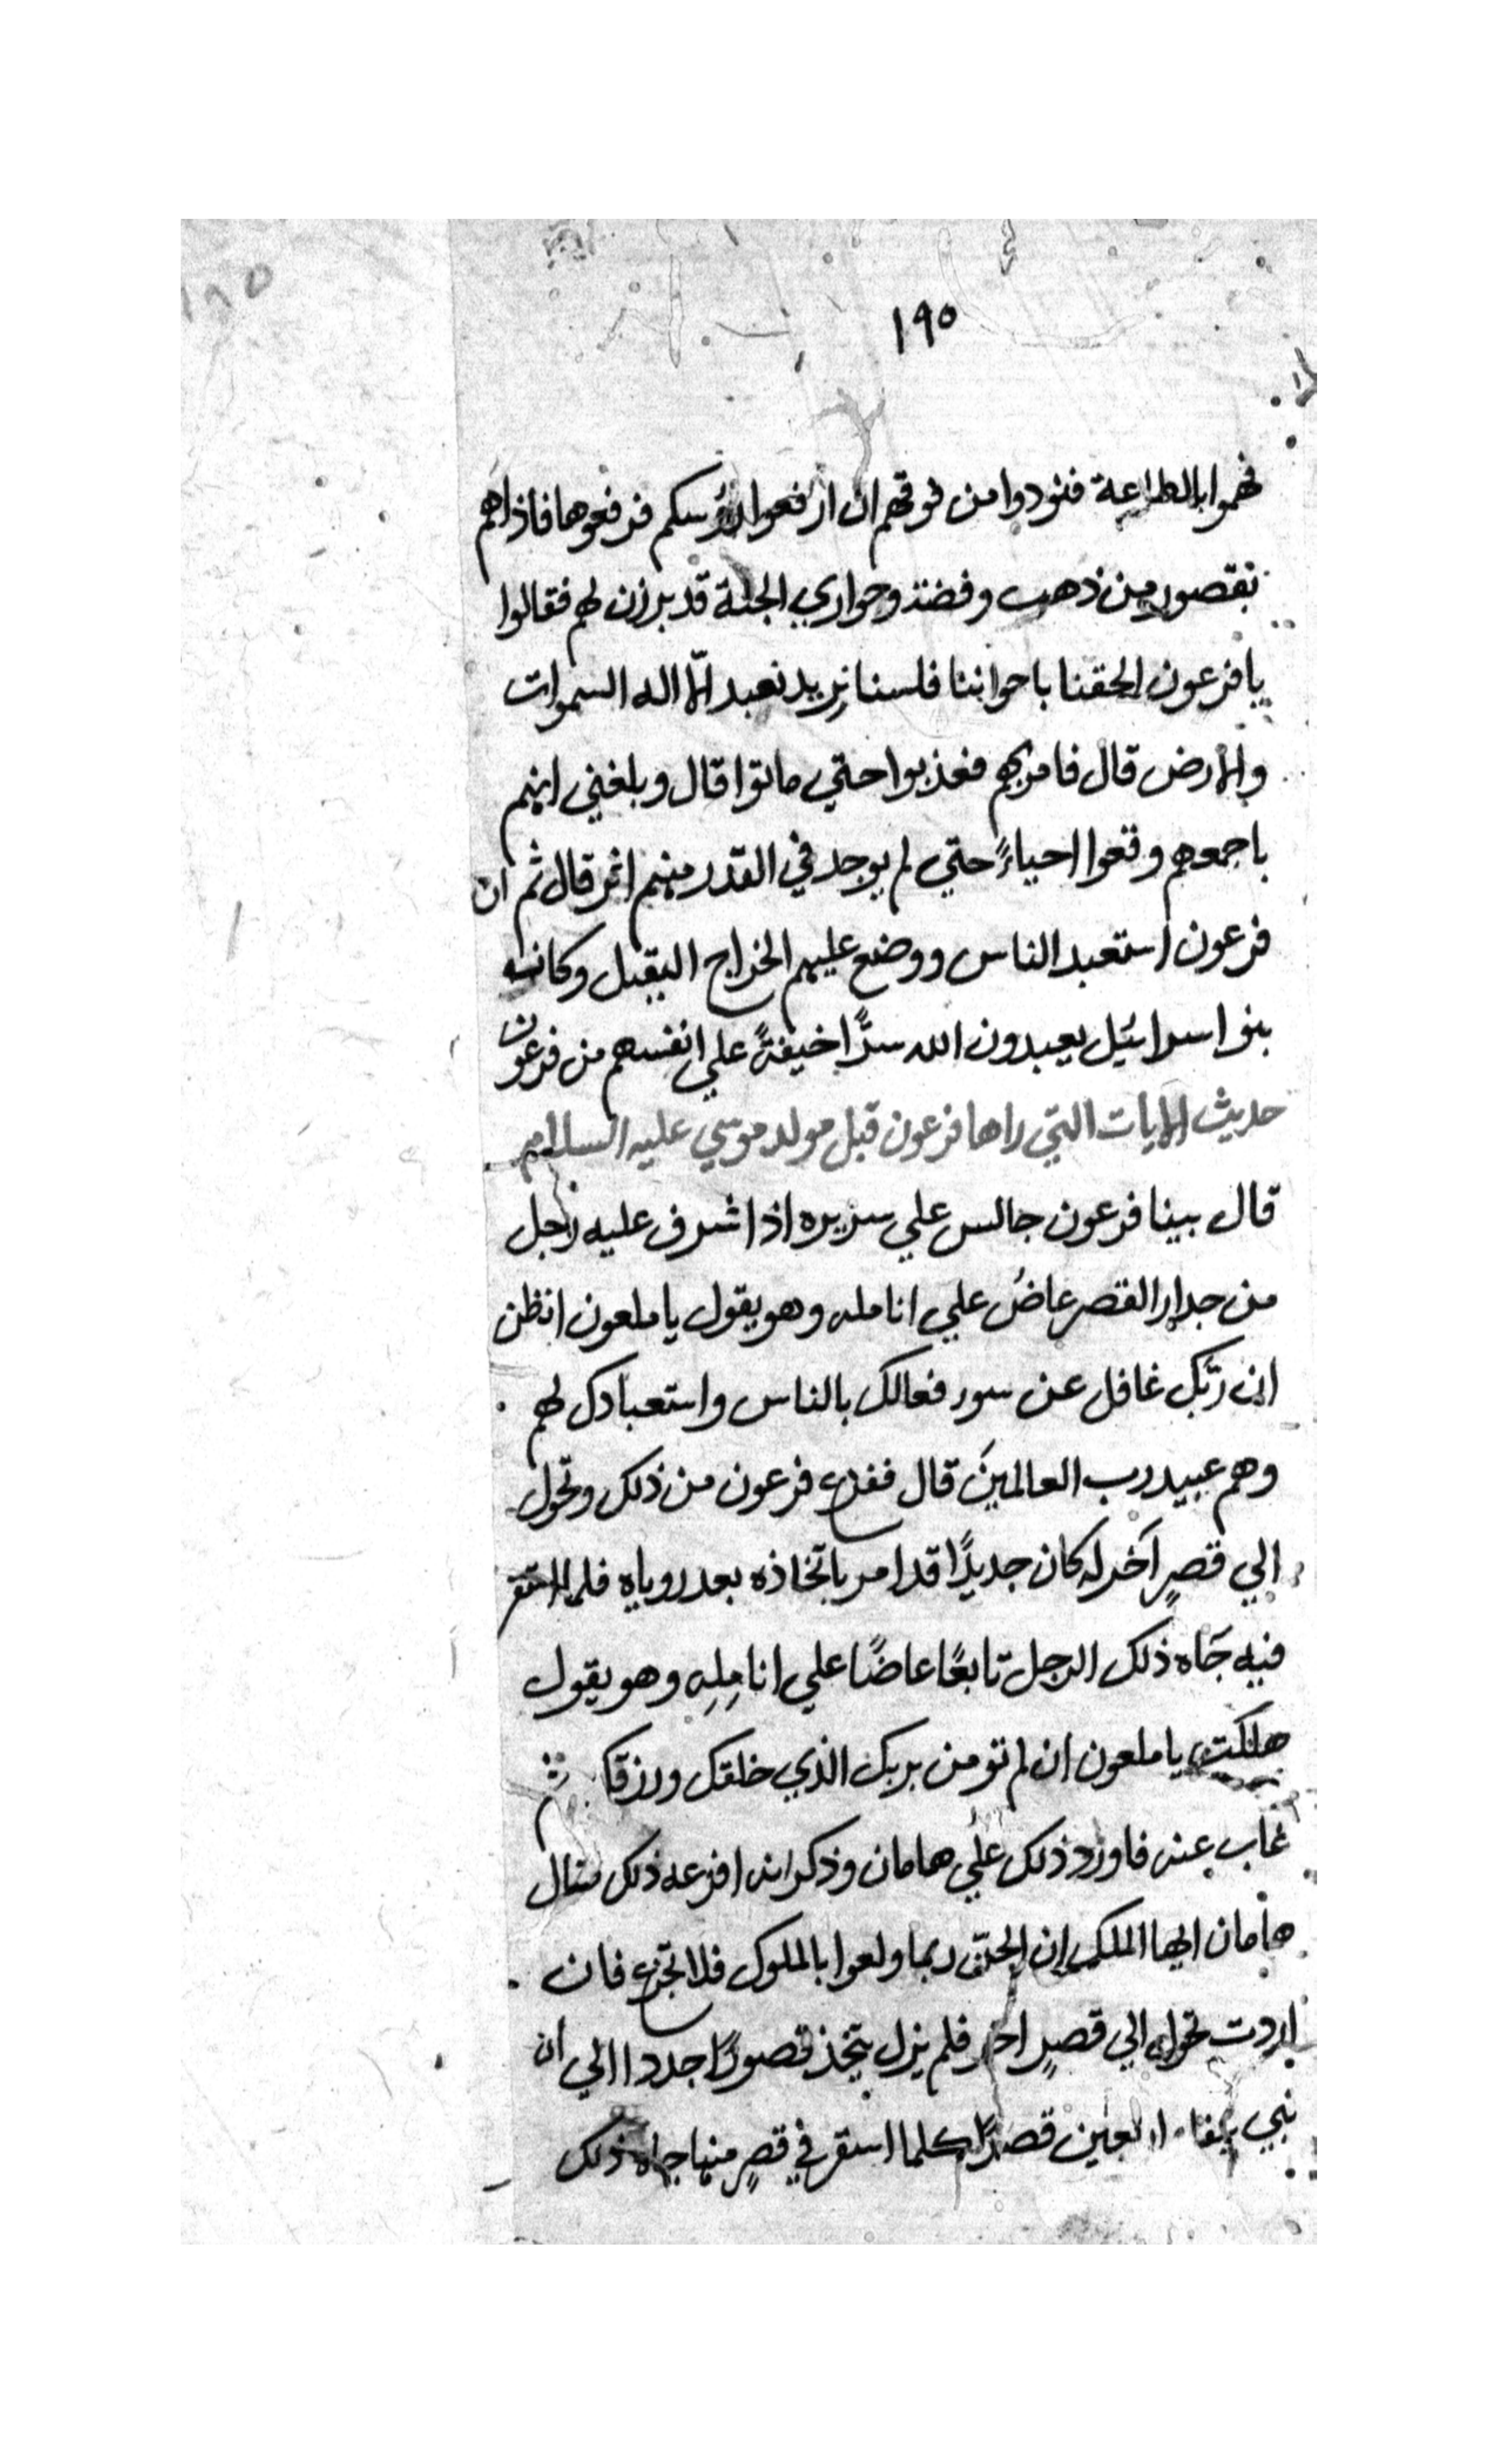 ١٩٥
فهموا بالطاعة فنودوا من فوقهم ان ارفعوا رؤسكم فرفعوها فاذا هم
بقصور من ذهب وفضة وحواري الجنة قد برزن لهم فقالوا
يا فرعون الحقنا باخواننا فلسنا نريد نعبد الا اله السموات
والارض قال فامر بهم فعذبوا حتي ماتوا قال وبلغني انهم
باجمعهم وقعوا احياءً حتي لم يوجد في القدر منهم اثر قال ثم ان
فرعون استعبد الناس ووضع عليهم الخراج الثقيل وكانت
بنو اسرائيل يعبدون الله سرًّا خيفةً علي انفسهم من فرعون
حديث الايات التي راها فرعون قبل مولد موسي عليه السلام
قال بينا فرعون جالس علي سريره اذ اشرف عليه رجل
من جدار القصر عاضُ علي انامله وهو يقول يا ملعون اتظن
ان ربّك غافل عن سور فعالك بالناس واستعبادك لهم
وهم عبيد رب العالمينَ قال ففزع فرعون من ذلك وتحول
الي قصرٍ آخر له كان جديدًا قد امر باتخاذه بعد روياه فلما استقر
فيه جَاه ذلك الرجل تابعًا عاضًا علي انامِلِه وهو يقول
هلكت يا ملعون ان لم تومن بربك الذي خلقك ورزقك ثم
غاب عنه فاورد ذلك علي هامان وذكر انه افزعه ذلك فقال
هامان ايها الملك ان الجن ربما ولعوا بالملوك فلا تجزع فان
اردت تحول الي قصرٍ اخر فلم يزل يتخذ قصورًا جددا الي ان
بني اربعين قصرًا كلما استقر في قصرٍ منها جاه ذلك